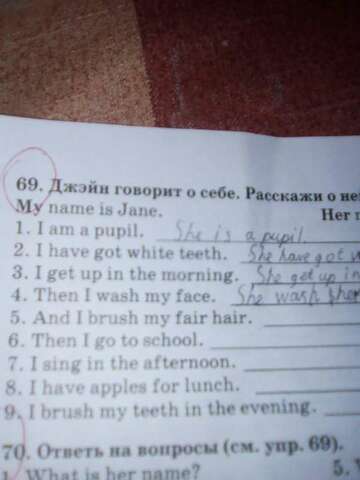 69. Джэйн говорит о себе. Расскажи о
My name is Jane. Her
1. I am a pupil. She is a pupil.
2. I have got white teeth. She have got
3. I get up in the morning. She get up in
4. Then I wash my face. She wash
5. And I brush my fair hair.
6. Then I go to school.
7. I sing in the afternoon.
8. I have apples for lunch.
9. I brush my teeth in the evening.
70. Ответь на вопросы (см. упр. 69).
1. What is her name? 5.